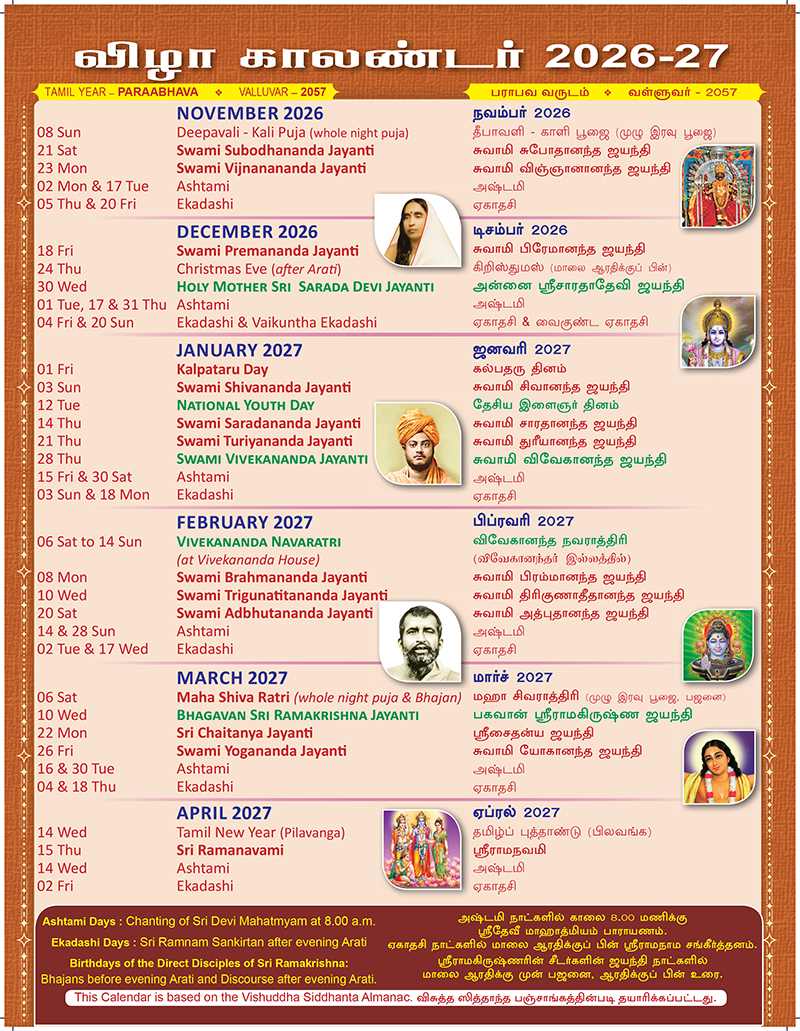 விழா காலண்டர் 2026-27
TAMIL YEAR – PARAABHAVA ❖ VALLUVAR – 2057
பராபவ வருடம் ❖ வள்ளுவர் - 2057
NOVEMBER 2026 நவம்பர் 2026
08 Sun Deepavali - Kali Puja (whole night puja) தீபாவளி - காளி பூஜை (முழு இரவு பூஜை)
21 Sat Swami Subodhananda Jayanti சுவாமி சுபோதானந்த ஜயந்தி
23 Mon Swami Vijnanananda Jayanti சுவாமி விஞ்ஞானானந்த ஜயந்தி
02 Mon & 17 Tue Ashtami அஷ்டமி
05 Thu & 20 Fri Ekadashi ஏகாதசி
DECEMBER 2026 டிசம்பர் 2026
18 Fri Swami Premananda Jayanti சுவாமி பிரேமானந்த ஜயந்தி
24 Thu Christmas Eve (after Arati) கிறிஸ்துமஸ் (மாலை ஆரதிக்குப் பின்)
30 Wed HOLY MOTHER SRI SARADA DEVI JAYANTI அன்னை ஸ்ரீசாரதாதேவி ஜயந்தி
01 Tue, 17 & 31 Thu Ashtami அஷ்டமி
04 Fri & 20 Sun Ekadashi & Vaikuntha Ekadashi ஏகாதசி & வைகுண்ட ஏகாதசி
JANUARY 2027 ஜனவரி 2027
01 Fri Kalpataru Day கல்பதரு தினம்
03 Sun Swami Shivananda Jayanti சுவாமி சிவானந்த ஜயந்தி
12 Tue NATIONAL YOUTH DAY தேசிய இளைஞர் தினம்
14 Thu Swami Saradananda Jayanti சுவாமி சாரதானந்த ஜயந்தி
21 Thu Swami Turiyananda Jayanti சுவாமி துரீயானந்த ஜயந்தி
28 Thu SWAMI VIVEKANANDA JAYANTI சுவாமி விவேகானந்த ஜயந்தி
15 Fri & 30 Sat Ashtami அஷ்டமி
03 Sun & 18 Mon Ekadashi ஏகாதசி
FEBRUARY 2027 பிப்ரவரி 2027
06 Sat to 14 Sun VIVEKANANDA NAVARATRI விவேகானந்த நவராத்திரி
(at Vivekananda House) (விவேகானந்தர் இல்லத்தில்)
08 Mon Swami Brahmananda Jayanti சுவாமி பிரம்மானந்த ஜயந்தி
10 Wed Swami Trigunatitananda Jayanti சுவாமி திரிகுணாதீதானந்த ஜயந்தி
20 Sat Swami Adbhutananda Jayanti சுவாமி அத்புதானந்த ஜயந்தி
14 & 28 Sun Ashtami அஷ்டமி
02 Tue & 17 Wed Ekadashi ஏகாதசி
MARCH 2027 மார்ச் 2027
06 Sat Maha Shiva Ratri (whole night puja & Bhajan) மஹா சிவராத்திரி (முழு இரவு பூஜை, பஜனை)
10 Wed BHAGAVAN SRI RAMAKRISHNA JAYANTI பகவான் ஸ்ரீராமகிருஷ்ண ஜயந்தி
22 Mon Sri Chaitanya Jayanti ஸ்ரீசைதன்ய ஜயந்தி
26 Fri Swami Yogananda Jayanti சுவாமி யோகானந்த ஜயந்தி
16 & 30 Tue Ashtami அஷ்டமி
04 & 18 Thu Ekadashi ஏகாதசி
APRIL 2027 ஏப்ரல் 2027
14 Wed Tamil New Year (Pilavanga) தமிழ்ப் புத்தாண்டு (பிலவங்க)
15 Thu Sri Ramanavami ஸ்ரீராமநவமி
14 Wed Ashtami அஷ்டமி
02 Fri Ekadashi ஏகாதசி
Ashtami Days : Chanting of Sri Devi Mahatmyam at 8.00 a.m.
Ekadashi Days : Sri Ramnam Sankirtan after evening Arati
Birthdays of the Direct Disciples of Sri Ramakrishna:
Bhajans before evening Arati and Discourse after evening Arati.
அஷ்டமி நாட்களில் காலை 8.00 மணிக்கு
ஸ்ரீதேவீ மாஹாத்மியம் பாராயணம்.
ஏகாதசி நாட்களில் மாலை ஆரதிக்குப் பின் ஸ்ரீராமநாம சங்கீர்த்தனம்.
ஸ்ரீராமகிருஷ்ணரின் சீடர்களின் ஜயந்தி நாட்களில்
மாலை ஆரதிக்கு முன் பஜனை, ஆரதிக்குப் பின் உரை.
This Calendar is based on the Vishuddha Siddhanta Almanac. விசுத்த ஸித்தாந்த பஞ்சாங்கத்தின்படி தயாரிக்கப்பட்டது.